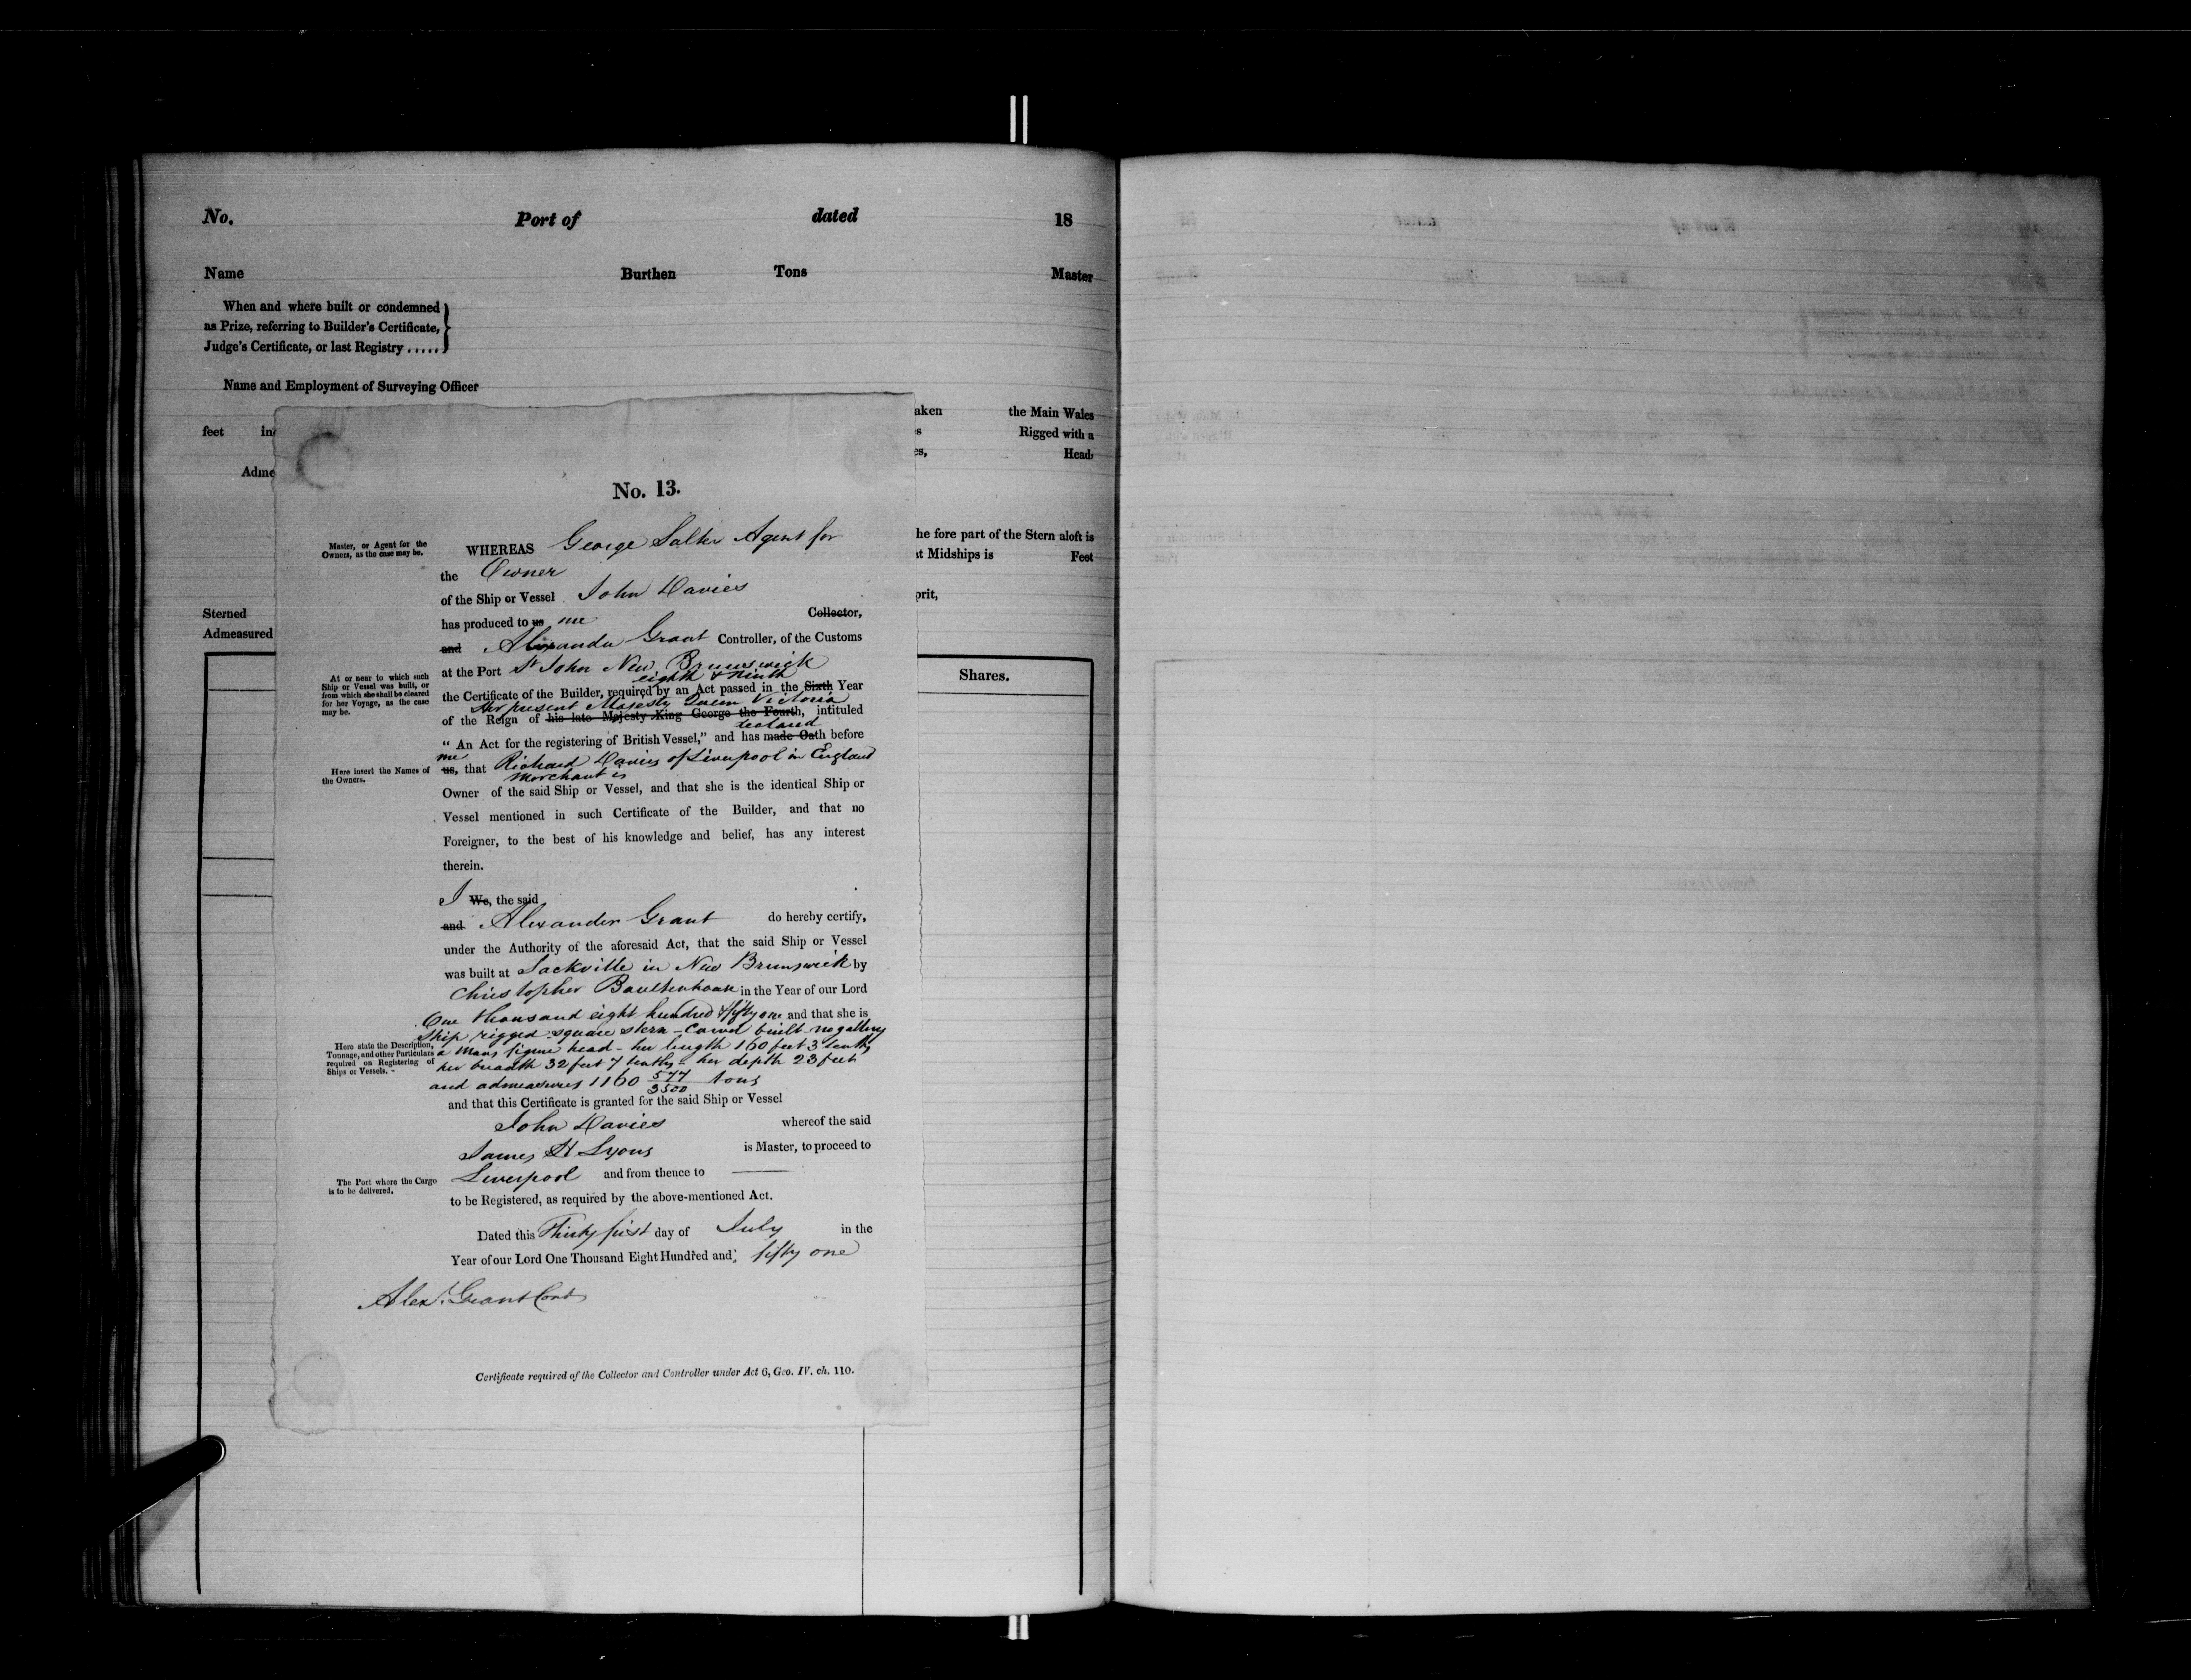 No. Port of dated 18
Name Burthen Tons Master
When and where built or condemned
as Prize, referring to Builder's Certificate,
Judge's Certificate, or last Registry .....
Name and Employment of Surveying Officer
aken the Main Wales
feet in
s Rigged with a
es, Head
Adme
he fore part of the Stern aloft is
t Midships is Feet
prit,
Sterned
Admeasured
Shares.
No. 13.
Master, or Agent for the
Owners, as the case may be.
WHEREAS George Salter Agent for
the Owner
of the Ship or Vessel John Davies
has produced to us me Collector,
and Alexander Grant Controller, of the Customs
at the Port St John New Brunswick
At or near to which such
Ship or Vessel was built, or
from which she shall be cleared
for her Voyage, as the case
may be.
eighth & Ninth
the Certificate of the Builder, required by an Act passed in the Sixth Year
Her present Majesty Queen Victoria
of the Reign of his late Majesty King George the Fourth, intituled
declared
“ An Act for the registering of British Vessel,” and has made Oath before
me
us, that Richard Davies of Liverpool in England
Here insert the Names of
the Owners.
Merchant is
Owner of the said Ship or Vessel, and that she is the identical Ship or
Vessel mentioned in such Certificate of the Builder, and that no
Foreigner, to the best of his knowledge and belief, has any interest
therein.
I We, the said
and Alexander Grant do hereby certify,
under the Authority of the aforesaid Act, that the said Ship or Vessel
was built at Sackville in New Brunswick by
Christopher Boultenhouse in the Year of our Lord
One thousand eight hundred & fifty one and that she is
Ship rigged square stern - Carvel built no gallery
Here state the Description,
Tonnage, and other Particulars
required on Registering of
Ships or Vessels.
a mans figure head - her length 160 feet 3 tenths
her breadth 32 feet 7 tenths - her depth 23 feet
and admeasures 1160 577/3500 tons
and that this Certificate is granted for the said Ship or Vessel
John Davies whereof the said
James H Lyons is Master, to proceed to
Liverpool and from thence to
The Port where the Cargo
is to be delivered.
to be Registered, as required by the above-mentioned Act.
Dated this Thirty first day of July in the
Year of our Lord One Thousand Eight Hundred and fifty one
Alexr Grant Cont
Certificate required of the Collector and Controller under Act 6, Geo. IV. ch. 110.